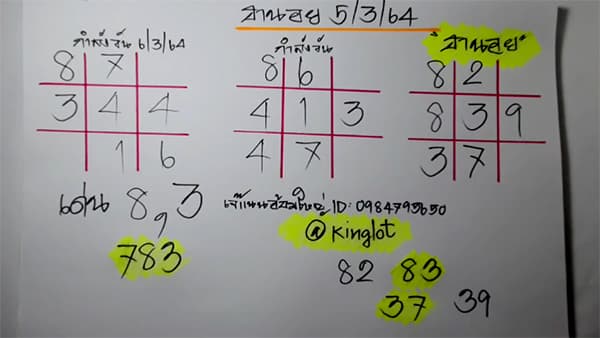 ฮานอย 5/3/64
กำลังวัน 6/3/64
8 7
3 4 4
1 6
กำลังวัน
8 6
4 1 3
4 7
"ฮานอย"
8 2
8 3 9
3 7
เด่น 8,3
783
ID: 0984795650
@Kinglot
82 83
37 39